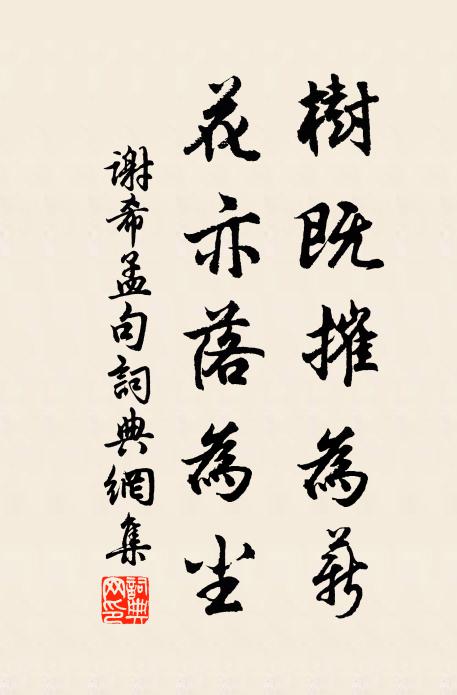 樹既摧為薪
花亦落為尘
謝希孟句詞典網集
詞典
网印